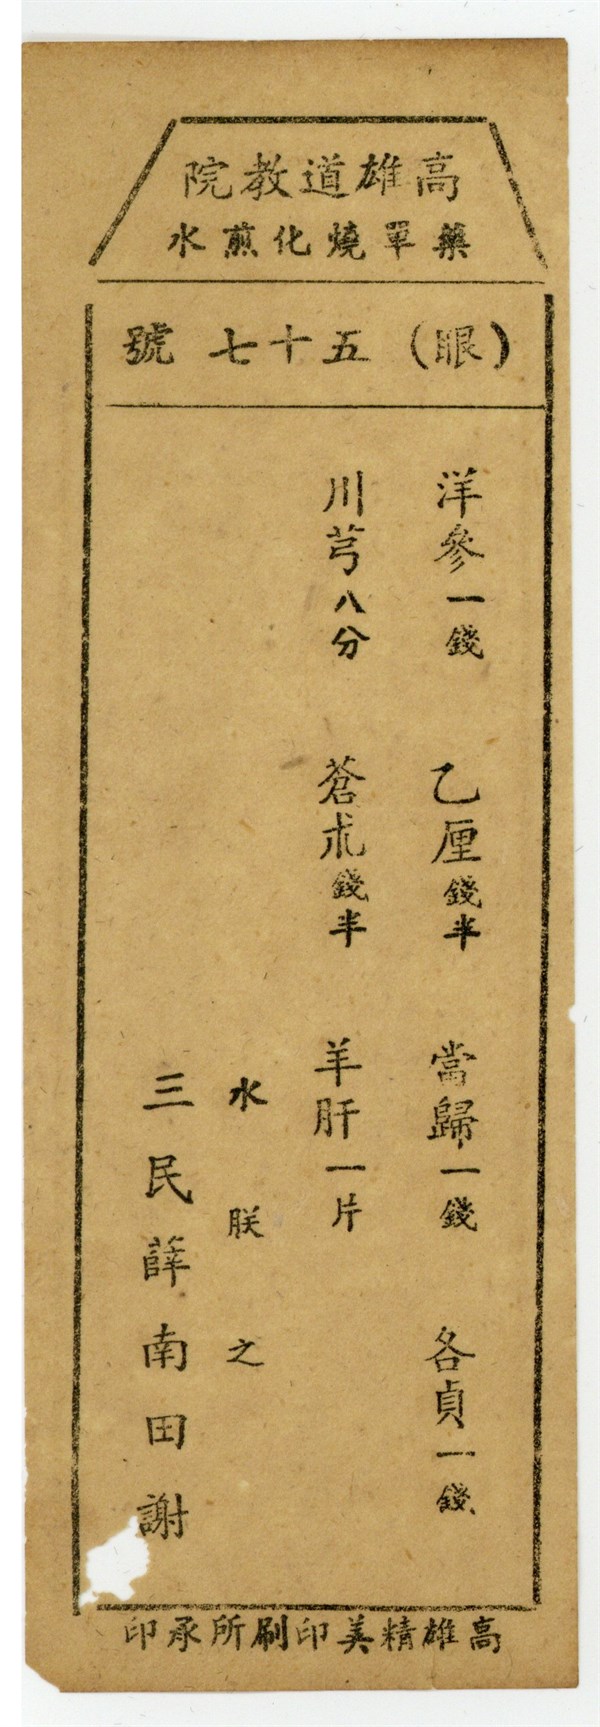 高雄道教院
藥單燒化煎水
(眼)五十七號
洋參一錢 乙厘錢半 當歸一錢 各貞一錢
川芎八分 蒼朮錢半 羊肝一片
水朕之
三民薛南田謝
高雄精美印刷所承印